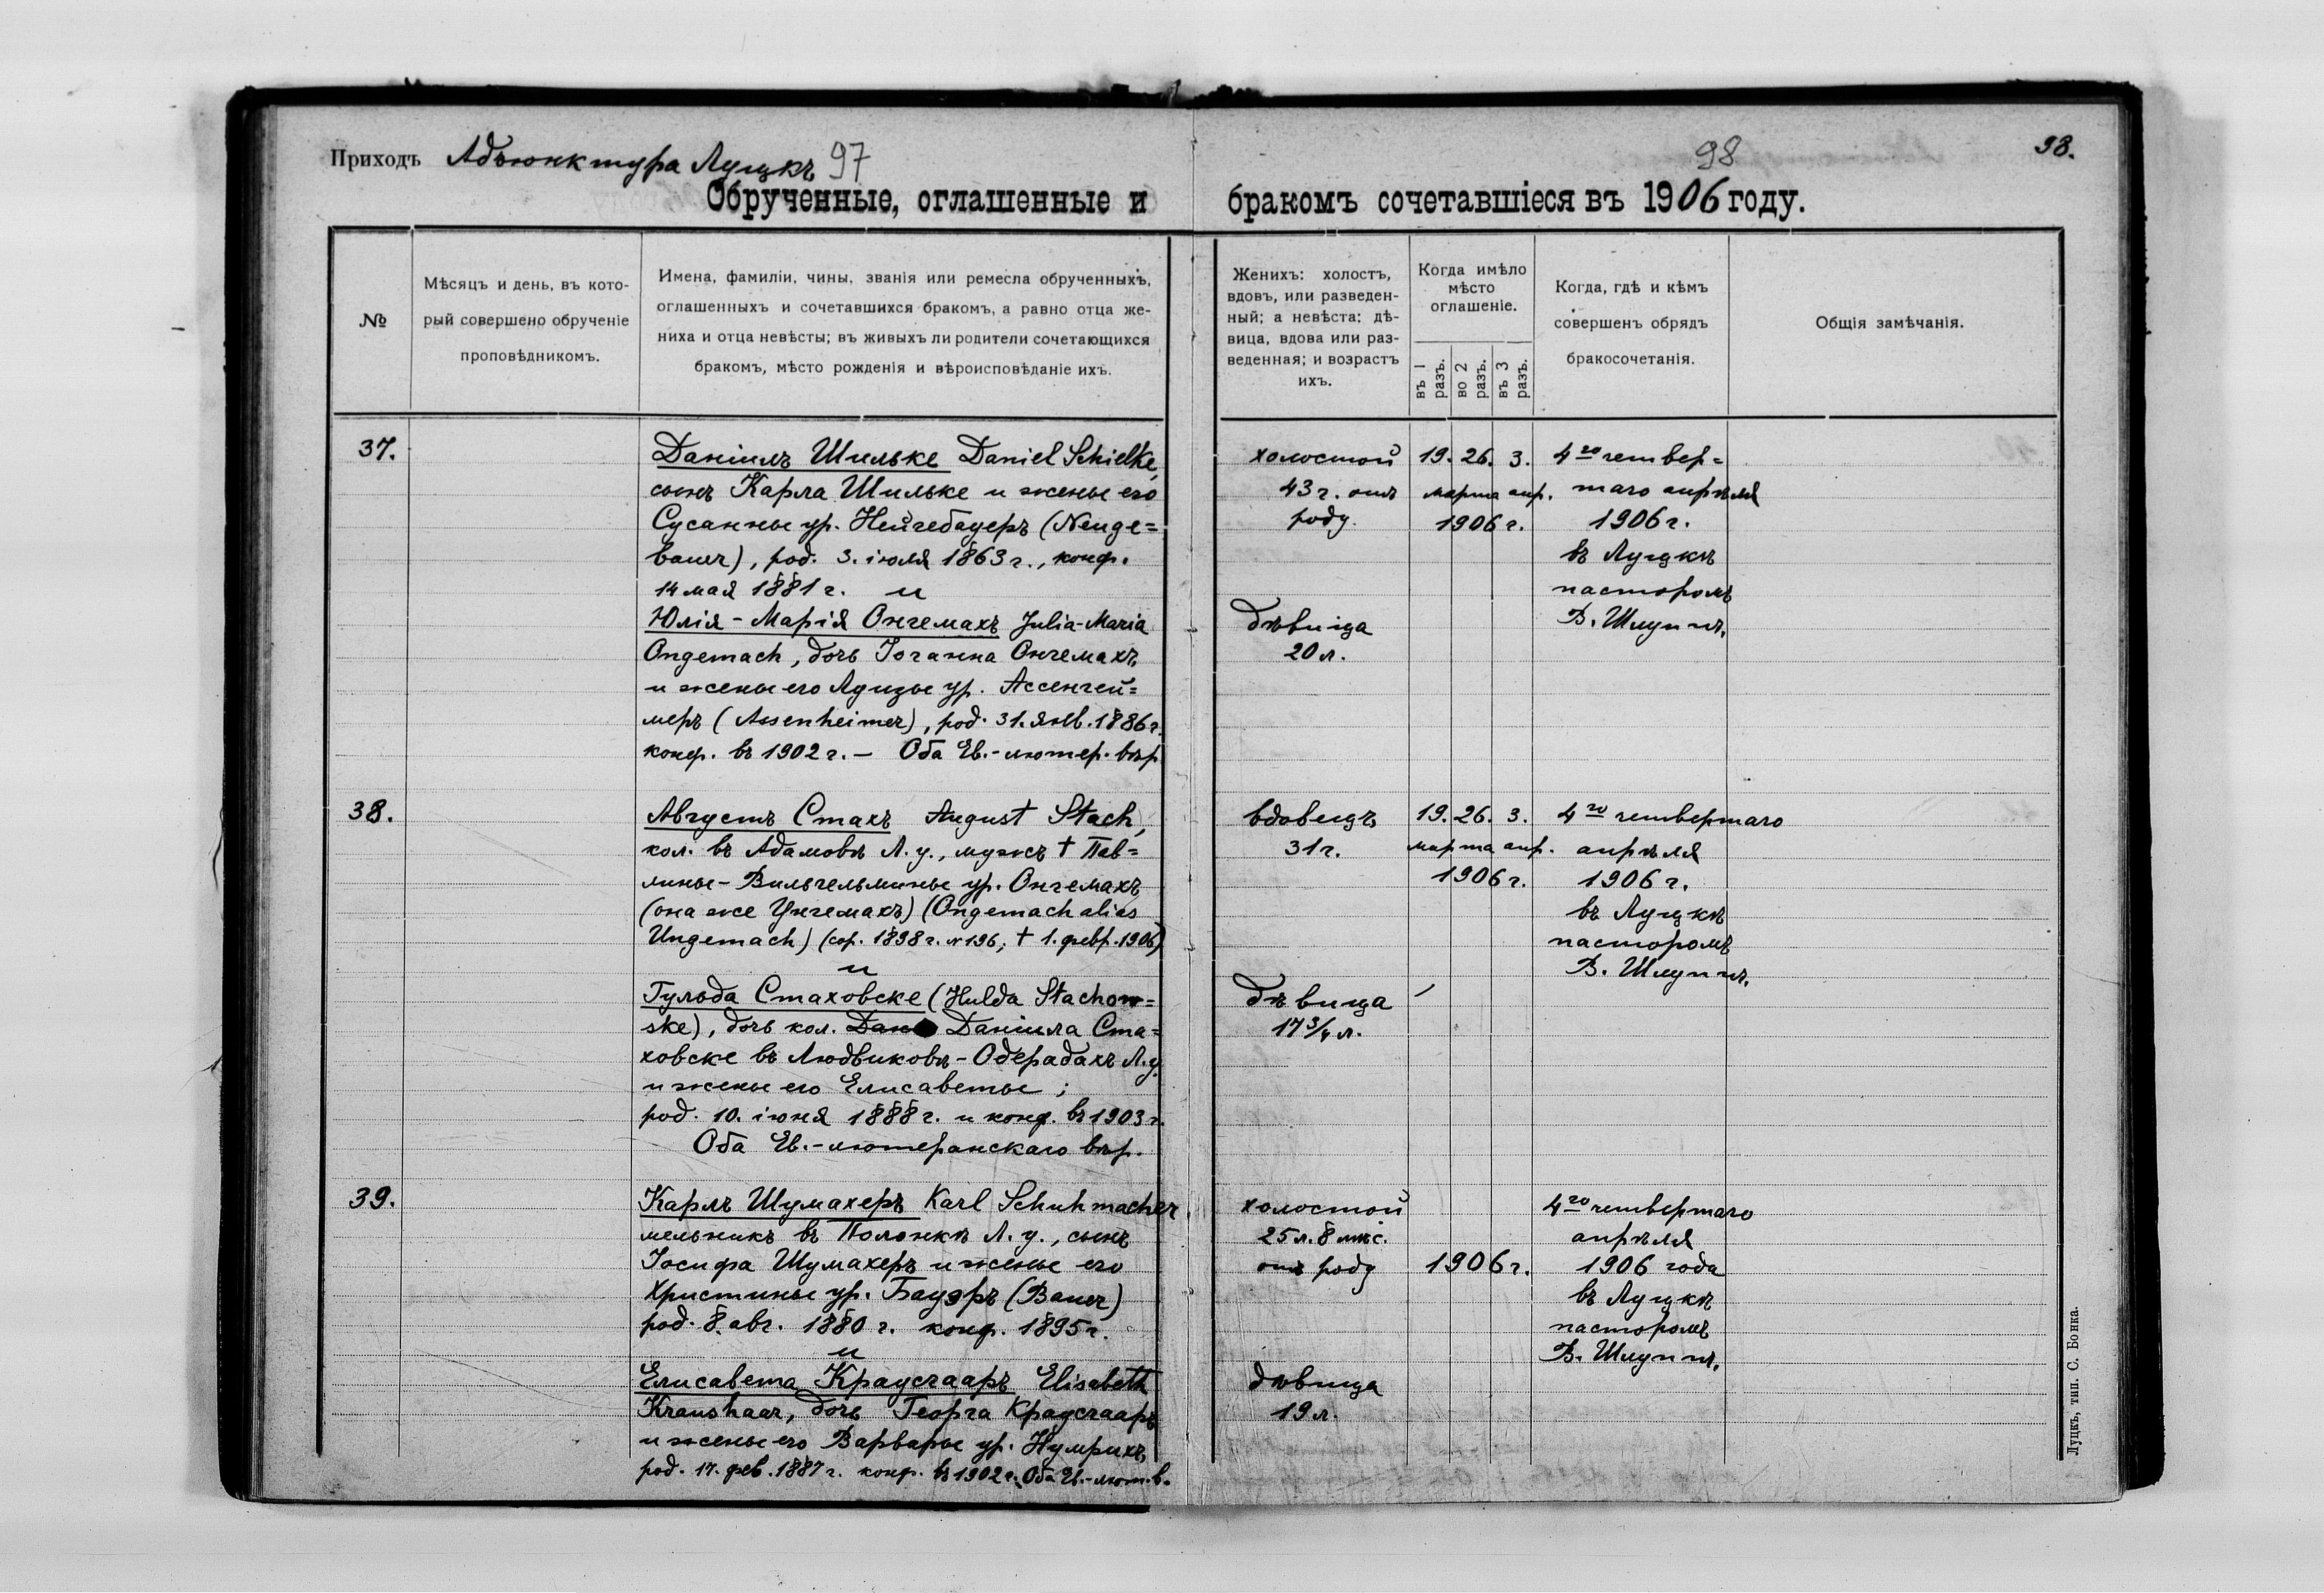 Приходъ Адъюнктура Луцкъ 97
98
98.
Обрученные, оглашенные и бракомъ сочетавшіеся въ 1906 году.
№
Мѣсяцъ и день, въ кото-
рый совершено обрученіе
проповѣдникомъ.
Имена, фамиліи, чины, званія или ремесла обрученныхъ,
оглашенныхъ и сочетавшихся бракомъ, а равно отца же-
ниха и отца невѣсты; въ живыхъ ли родители сочетающихся
бракомъ, мѣсто рожденія и вѣроисповѣданіе ихъ.
Женихъ: холостъ,
вдовъ, или разведен-
ный; а невѣста: дѣ-
вица, вдова или раз-
веденная; и возрастъ
ихъ.
Когда имѣло
мѣсто
оглашеніе.
въ 1 разъ.
во 2 разъ.
въ 3 разъ.
Когда, гдѣ и кѣмъ
совершенъ обрядъ
бракосочетанія.
Общія замѣчанія.
37.
Даніилъ Шильке Daniel Schielke,
сынъ Карла Шильке и жены его
Сусанны ур. Нейгебауеръ (Neuge=
bauer), род. 3. іюля 1863 г., конф.
14 мая 1881 г. и
Юлія - Марія Онгемахъ Julia-Maria
Ongemach, дочь Іоганна Онгемахъ
и жены его Луизы ур. Ассенгей=
меръ (Assenheimer), род. 31. янв. 1886 г.
конф. въ 1902 г. — Оба Ев.-лютер. вѣр.
холостой
43 г. отъ
роду.
дѣвица
20 л.
19. 26. 3.
марта апр.
1906 г.
4го четвер=
таго апрѣля
1906 г.
въ Луцкѣ
пасторомъ
В. Шлуппъ.
38.
Августъ Стахъ August Stach,
кол. въ Адамовѣ Л. у., мужъ † Пав=
лины - Вильгельмины ур. Онгемахъ
(она же Унгемахъ) (Ongemach alias
Ungemach) (сор. 1898 г. № 196; † 1. февр. 1906)
и
Гульда Стаховске (Hulda Stachow=
ske), дочь кол. Даніила Ста=
ховске въ Людвиковѣ - Одерадахъ Л. у.
и жены его Елисаветы;
род. 10. іюня 1888 г. и конф. въ 1903 г.
Оба Ев.-лютеранскаго вѣр.
вдовецъ
31 г.
дѣвица
17 3/4 л.
19. 26. 3.
марта апр.
1906 г.
4го четвертаго
апрѣля
1906 г.
въ Луцкѣ
пасторомъ
В. Шлуппъ.
39.
Карлъ Шумахеръ Karl Schuhmacher
мельникъ въ Полонкѣ Л. у., сынъ
Іосифа Шумахеръ и жены его
Христины ур. Бауэръ (Bauer)
род. 8. авг. 1880 г. конф. 1895 г.
и
Елисавета Краусгааръ Elisabeth
Kraushaar, дочь Георга Краусгааръ
и жены его Варвары ур. Нумрихъ,
род. 17. фев. 1887 г. конф. въ 1902 г. Оба Ев.-лют. в.
холостой
25 л. 8 мѣс.
отъ роду
дѣвица
19 л.
1906 г.
4го четвертаго
апрѣля
1906 года
въ Луцкѣ
пасторомъ
В. Шлуппъ.
Луцкъ, тип. С. Бонка.